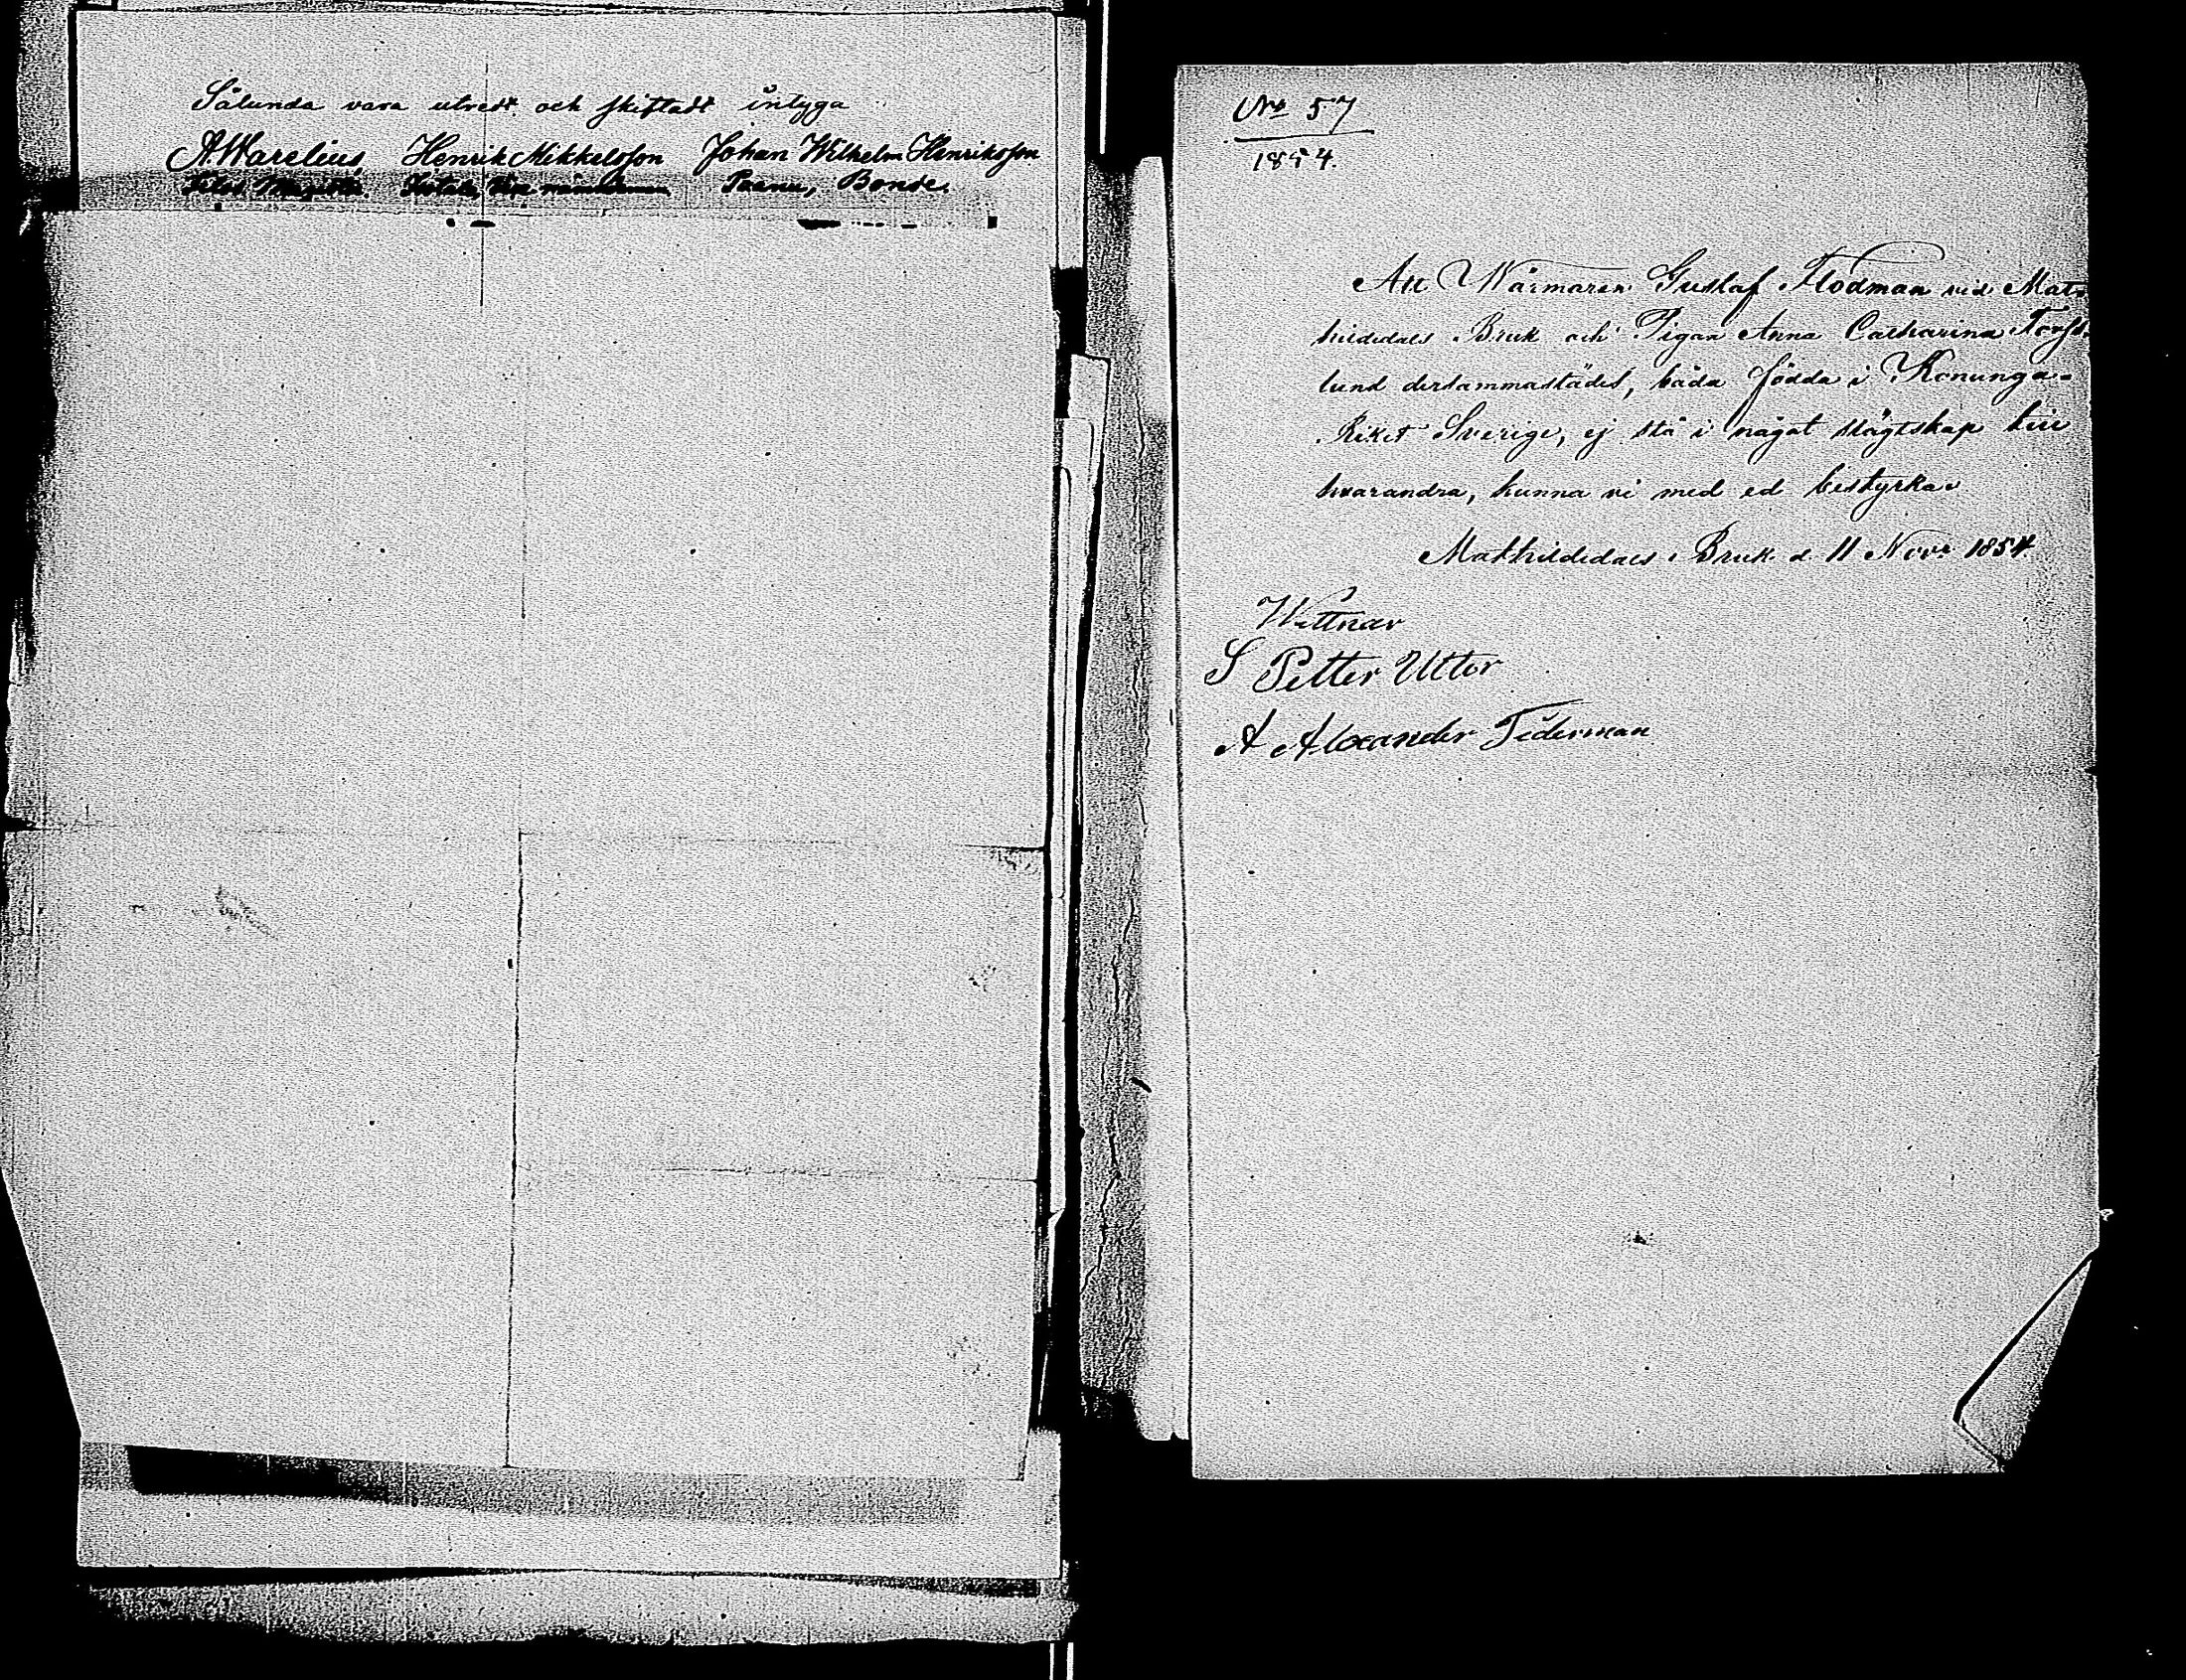 Sålunda vara utredt och skiftadt intyga
A. Warelius, Henrik Mikkelsson Johan Wilhelm Henriksson
Filos. Magister. Bonde.
No 57
1854.
Att Wärmaren Gustaf Flodman vid Mat-
hildedals Bruk och Pigan Anna Catharina Forss-
lund dersammastädes, båda födda i Konunga-
Riket Sverige, ej stå i något slägtskap till
hvarandra, kunna vi med ed bestyrka.
Mathildedals Bruk d. 11 Novr 1854
Wittnar
S Petter Utter
A Alexander Tederman